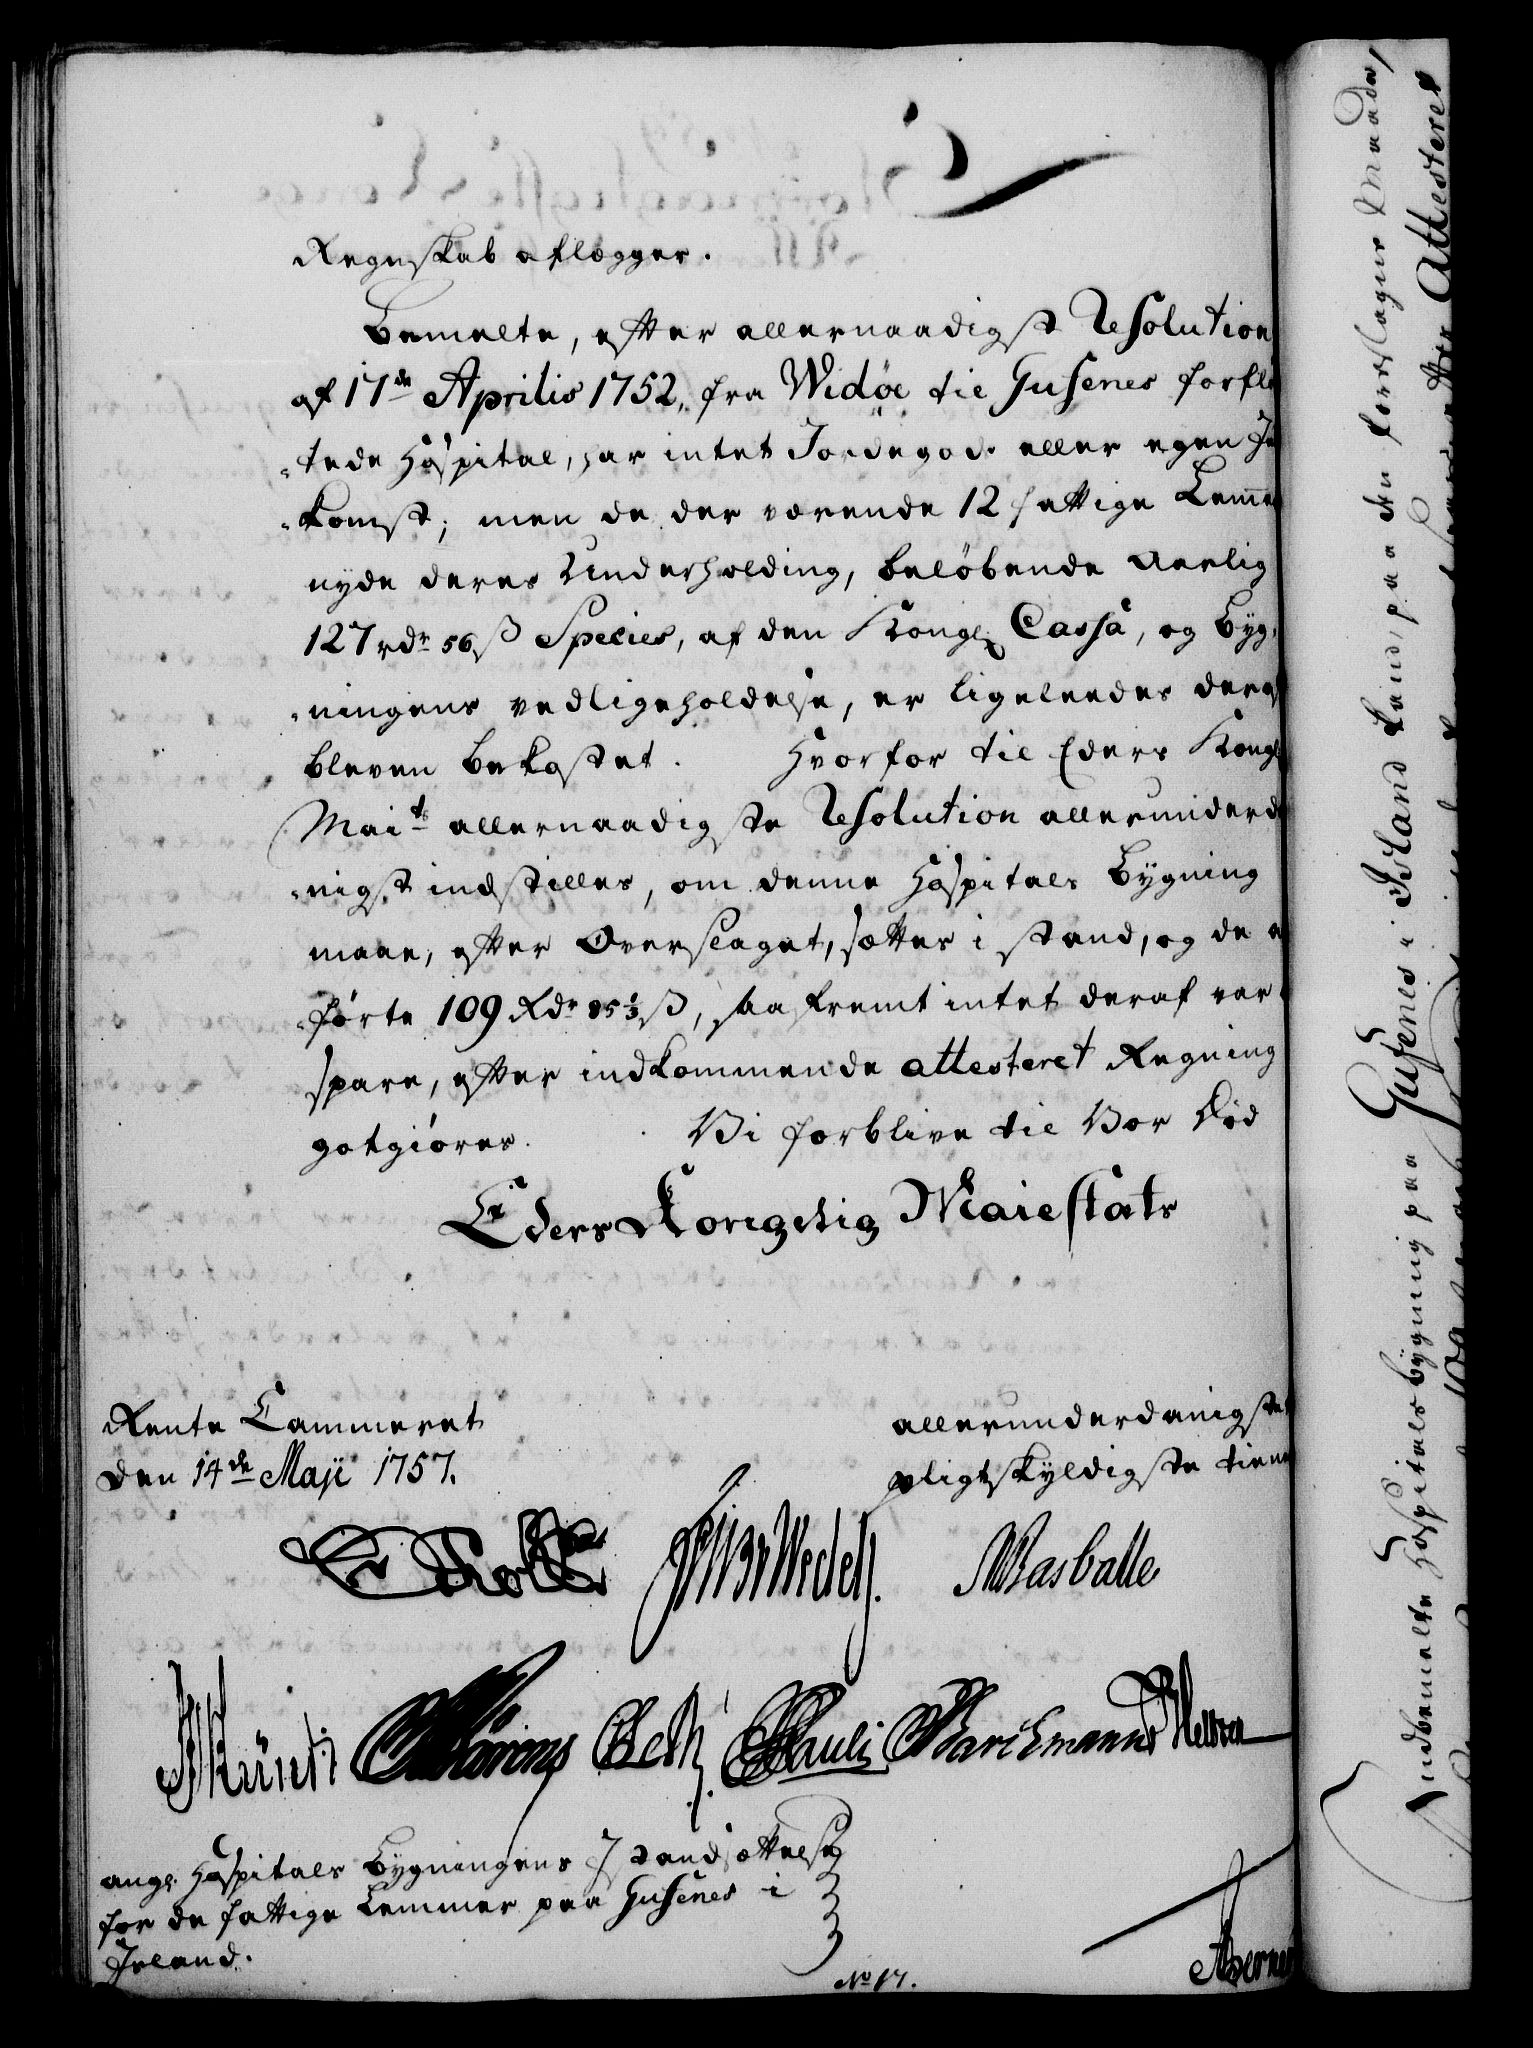 Regnskab aflegger.
Bemelte, efter allernaadigst Resolution
af 17de Aprilis 1752, fra Widøe til Gufenes forfløt
-tede Hospital, har intet Jordegods eller egen Ind
-komst; men de der værende 12 fattige Lemmer
nyde deres Underholding, beløbende Aarlig
127 rdr 56 ß Species, af den Kongl. Cassa, og Byg-
-ningens vedligeholdelse, er ligeleedes deraf
bleven bekostet. Hvorfor til Eders Kongl
Maits allernaadigste Resolution allerunderda
-nigst indstilles, om denne Hospitals Bygning
maae, efter Overslaget, sættes i stand, og de an
-førte 109 Rdr 85 1/3 ß, saafremt intet deraf kand
spare, efter indkommende attesteret Regning
gotgiøres. Vi forblive til Vor Død
Eders Kongelig Maiestæts
Rente Cammeret
den 14de Maji 1757.
allerunderdanigste
pligtskyldigste tiene
Wedell
Rasballe
Pauli
Barckmann
ang: Hospitals Bygningens Istandsættelse
for de fattige Lemmer paa Gufenes i
Island.
No 17.
Indbemelte Hospitals Bygning paa Gufenes i Island kand, paa den foreslagne Maade,
Attesteret